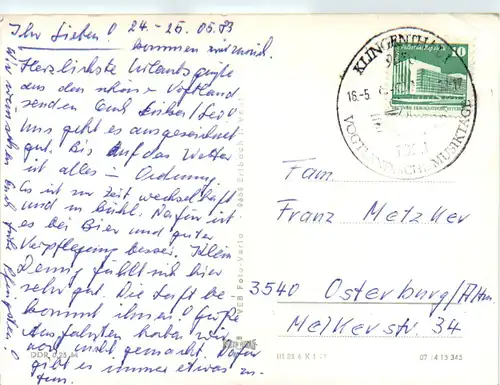 Ihr Lieben! 24.-26.05.83
kommen wir zurück.
Herzlichste Urlaubsgrüße
aus dem schönen Vogtland
senden Euch
Uns geht es ausgezeichnet
gut. Bis auf das Wetter
ist alles in Ordnung.
Es ist zur Zeit wechselhaft
und zu kühl. Dafür ist
es bei Bier und guter
Verpflegung besser. Klein
Denny fühlt sich hier
sehr gut. Die Luft be
kommt ihm! Große
Ausfahrten haben wir
noch nicht gemacht. Dafür
gibt es immer etwas zu
tun.
Wir wünschen Euch frohe Pfingsten!
DDR 0,25 M
VEB Foto-Verlag 9655 Erlbach i. Vogtl.
KLINGENTHAL
16.-5.
VOGTLÄNDISCHE MUSIKTAGE
10
Palast der Republik
Fam.
Franz Metzker
3540 Osterburg/Altm.
Melkerstr. 34